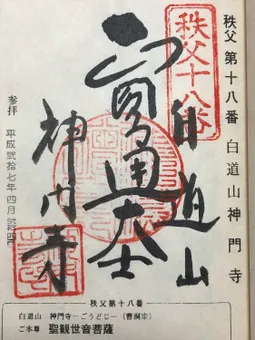 秩父第十八番 白道山神門寺
秩父十八番
白道山
圓通大士
神門寺
参拝 平成弐拾七年四月
秩父第十八番
白道山 神門寺−ごうどじ−(曹洞宗)
ご本尊 聖観世音菩薩